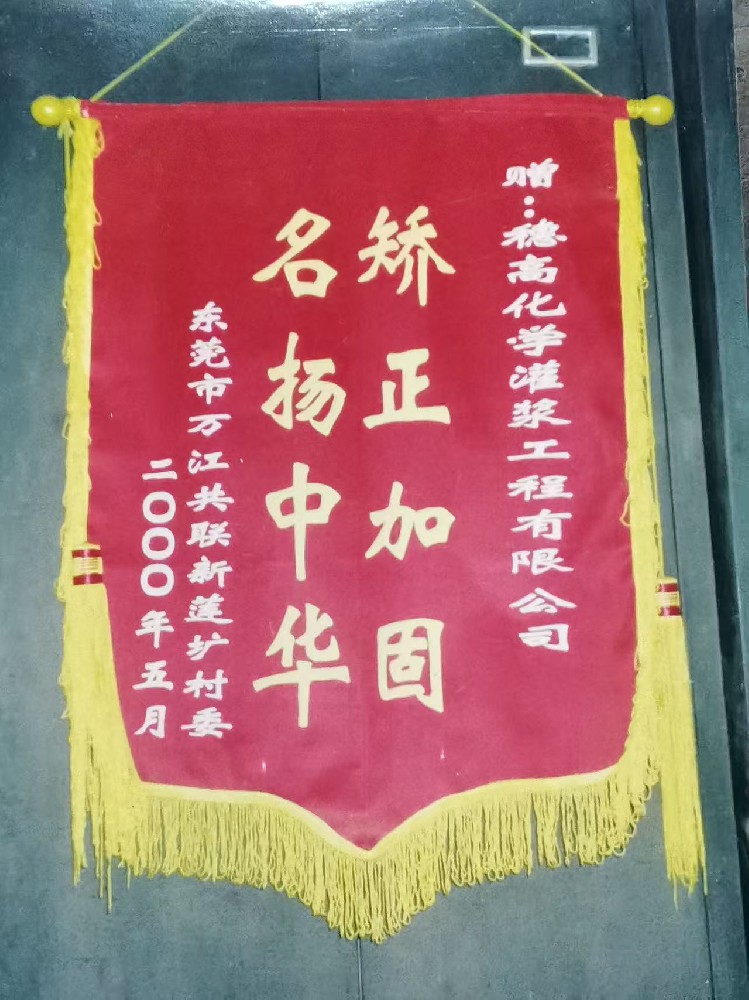 赠：穗高化学灌浆工程有限公司
矫正加固
名扬中华
东莞市万江共联新莲圹村委
二〇〇〇年五月